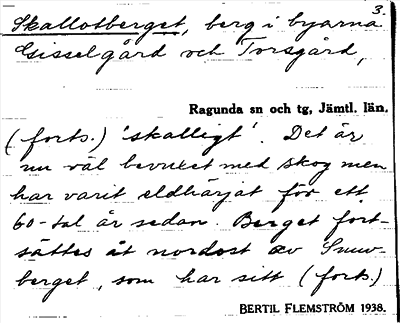 3.
Skallotberget, berg i byarna
Gisselgård och Torsgård,
Ragunda sn och tg, Jämtl. län.
(forts.) 'skalligt'. Det är
nu väl bevuxet med skog men
har varit eldhärjat för ett
60-tal år sedan. Berget fort-
sättes åt nordost av Snuv-
berget, som har sitt (forts.)
BERTIL FLEMSTRÖM 1938.